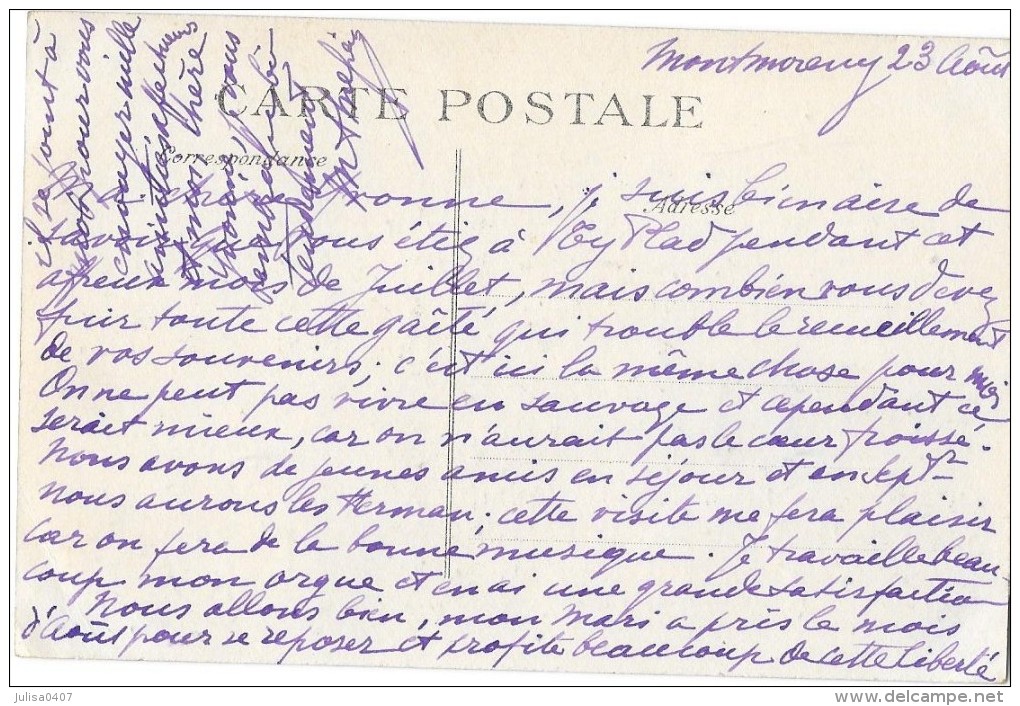 Montmorency 23 Août
CARTE POSTALE
Correspondance
Adresse
Ma chère Yvonne, je suis bien aise de
savoir que vous étiez à Ty Plad pendant cet
affreux mois de Juillet, mais combien vous devez
fuir toute cette gaîté qui trouble le recueillement
de vos souvenirs; c'est ici la même chose pour moi
On ne peut pas vivre en sauvage et cependant ce
serait mieux, car on n'aurait pas le cœur froissé.
Nous avons de jeunes amis en séjour et en Sept
nous aurons les Herman; cette visite me fera plaisir
car on fera de la bonne musique. Je travaille beau-
coup mon orgue et en ai une grande satisfaction
Nous allons bien, mon Mari a pris le mois
d'Août pour se reposer et profite beaucoup de cette liberté
il se joint à
pour vous
envoyer mille
amitiés affectueuses
chère
Yvonne, vous
tendrement
julisa0407
www.delcampe.net